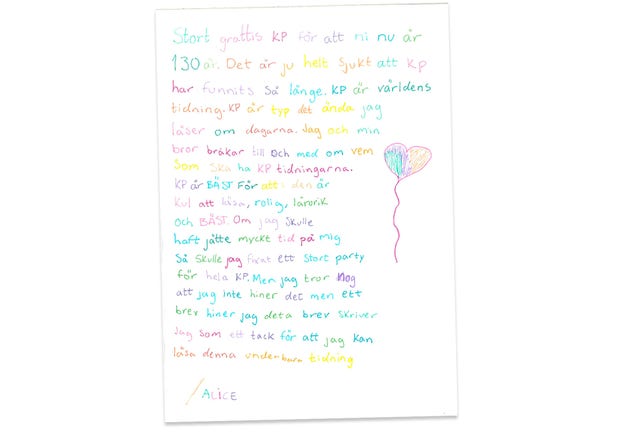 Stort grattis KP för att ni nu är
130 år. Det är ju helt sjukt att KP
har funnits så länge. KP är världens
tidning. KP är typ det ända jag
läser om dagarna. Jag och min
bror bråkar till och med om vem
som ska ha KP tidningarna.
KP är BÄST för att: den är
kul att läsa, rolig, lärorik
och BÄST. Om jag skulle
haft jätte myckt tid på mig
så skulle jag fixat ett stort party
för hela KP. Men jag tror nog
att jag inte hiner det men ett
brev hiner jag deta brev skriver
jag som ett tack för att jag kan
läsa denna underbara tidning
/ALICE